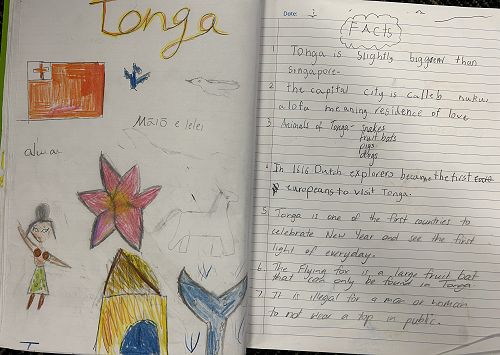 Tonga
MāIō e lelei
Date:
FACTS
1 Tonga is slightly bigger than
singapore.
2. the capital city is calleb nuku
alofa meaning residence of love
3. Animals of Tonga - snakes
fruit bats
pigs
dogs
4. In 1616 Dutch explorers became the first
europeans to visit Tonga.
5. Tonga is one of the first countries to
celebrate New Year and see the first
light of everyday.
6. The Flying fox is a large fruit bat
that can only be found in Tonga
7. It is illegal for a man or woman
to not wear a top in public.